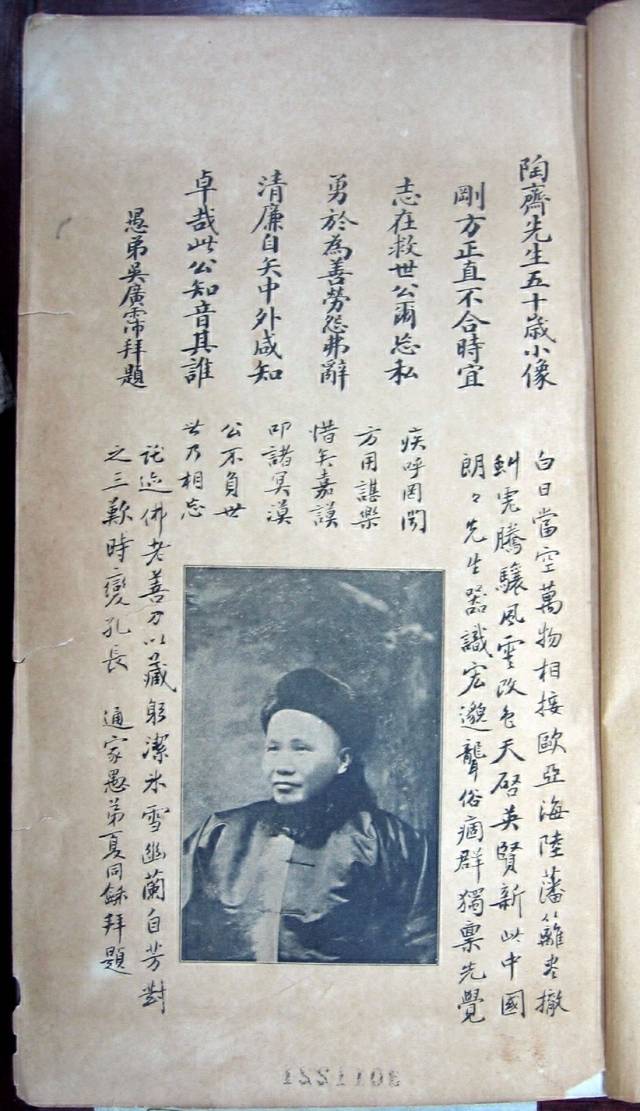 陶齊先生五十歲小像
剛方正直不合時宜
志在救世公爾忘私
勇於為善勞怨弗辭
清廉自矢中外咸知
卓哉此公知音其誰
愚弟吳廣霈拜題
白日當空萬物相接歐亞海陸藩籬盡撤
虯霓騰驤風雲改色天啓英賢新此中國
朗々先生器識宏邈聾俗痼群獨稟先覺
疾呼罔聞
方用諶樂
惜矣嘉謨
叩諸冥漠
公不負世
世乃相忘
託迹佛老善刀以藏躬潔冰雪幽蘭自芳對
之三歎時變孔長 通家愚弟夏同龢拜題